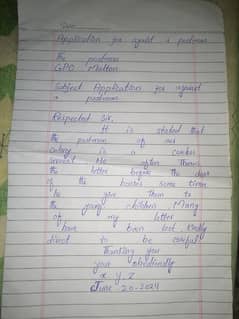 Application for against a postman
The postman
GPO Multan
Subject Application for against
a postman
Respected Sir,
It is stated that
the postman of our
colony is a careless
servant He often throws
the letter before the door
of the houses some times
he give them to
the young children Many
of my letter
have been lost kindly
direct to be careful
Thanking you
your obediently
x y z
June 20-2024